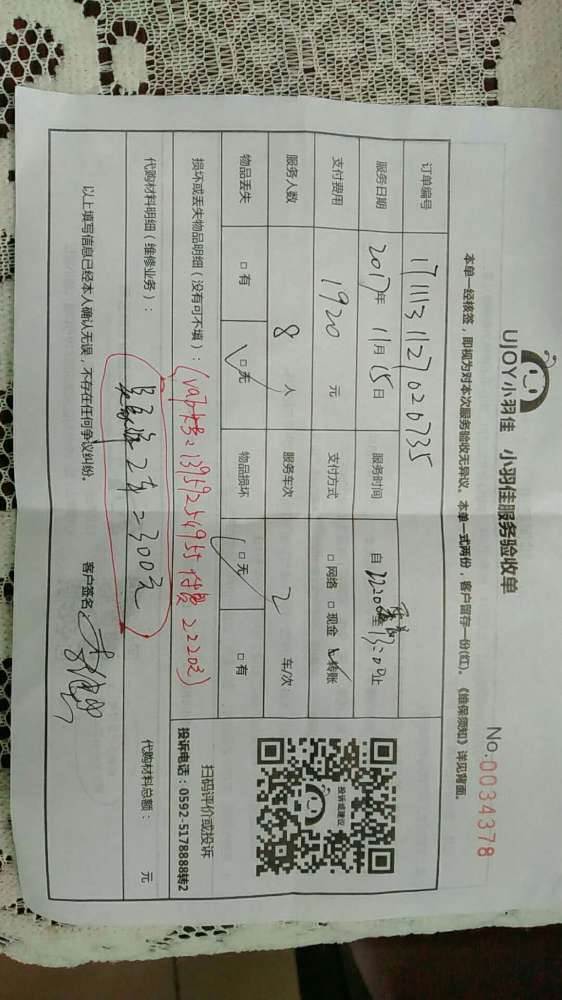 UJOY小羽佳 小羽佳服务验收单
No.0034378
本单一经核签，即视为对本次服务验收无异议。本单一式两份，客户留存一份(红)。《维保须知》详见背面。
订单编号 1711131127020735
服务日期 2017年 11月 15日 服务时间 自 22:00 至 13:00 止
支付费用 1920 元 支付方式 □网络 □现金 □转账
服务人数 8 人 服务车次 2 车/次
物品丢失 □有 □无 物品损坏 □无 □有
损坏或丢失物品明细（没有可不填）：
(vap卡号：13959254955 付费 2220元)
代购材料明细（维修业务）：
2车=300元
代购材料总额： 元
以上填写信息已经本人确认无误，不存在任何争议纠纷。
客户签名：
投诉或建议
扫码评价或投诉
投诉电话：0592-5178888转2